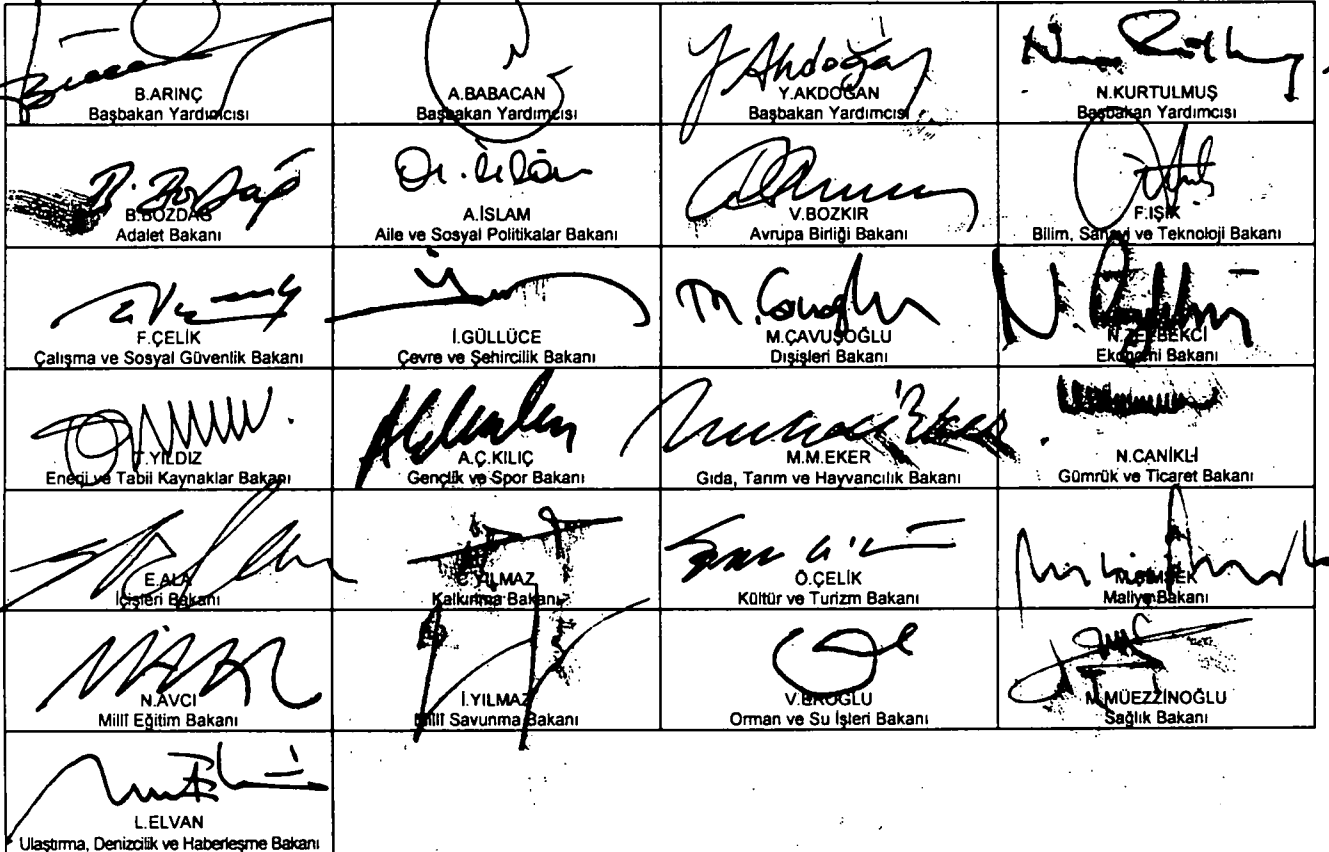 B.ARINÇ
Başbakan Yardımcısı
A.BABACAN
Başbakan Yardımcısı
Y.AKDOĞAN
Başbakan Yardımcısı
N.KURTULMUŞ
Başbakan Yardımcısı
B. Bozdağ
B.BOZDAĞ
Adalet Bakanı
A.İSLAM
Aile ve Sosyal Politikalar Bakanı
V.BOZKIR
Avrupa Birliği Bakanı
F.IŞIK
Bilim, Sanayi ve Teknoloji Bakanı
F.ÇELİK
Çalışma ve Sosyal Güvenlik Bakanı
İ.GÜLLÜCE
Çevre ve Şehircilik Bakanı
M.ÇAVUŞOĞLU
Dışişleri Bakanı
N.ZEYBEKCİ
Ekonomi Bakanı
T.YILDIZ
Enerji ve Tabiî Kaynaklar Bakanı
A.Ç.KILIÇ
Gençlik ve Spor Bakanı
M.M.EKER
Gıda, Tarım ve Hayvancılık Bakanı
N.CANİKLİ
Gümrük ve Ticaret Bakanı
E.ALA
İçişleri Bakanı
C.YILMAZ
Kalkınma Bakanı
Ö.ÇELİK
Kültür ve Turizm Bakanı
M.ŞİMŞEK
Maliye Bakanı
N.AVCI
Millî Eğitim Bakanı
İ.YILMAZ
Millî Savunma Bakanı
V.EROĞLU
Orman ve Su İşleri Bakanı
M.MÜEZZİNOĞLU
Sağlık Bakanı
L.ELVAN
Ulaştırma, Denizcilik ve Haberleşme Bakanı